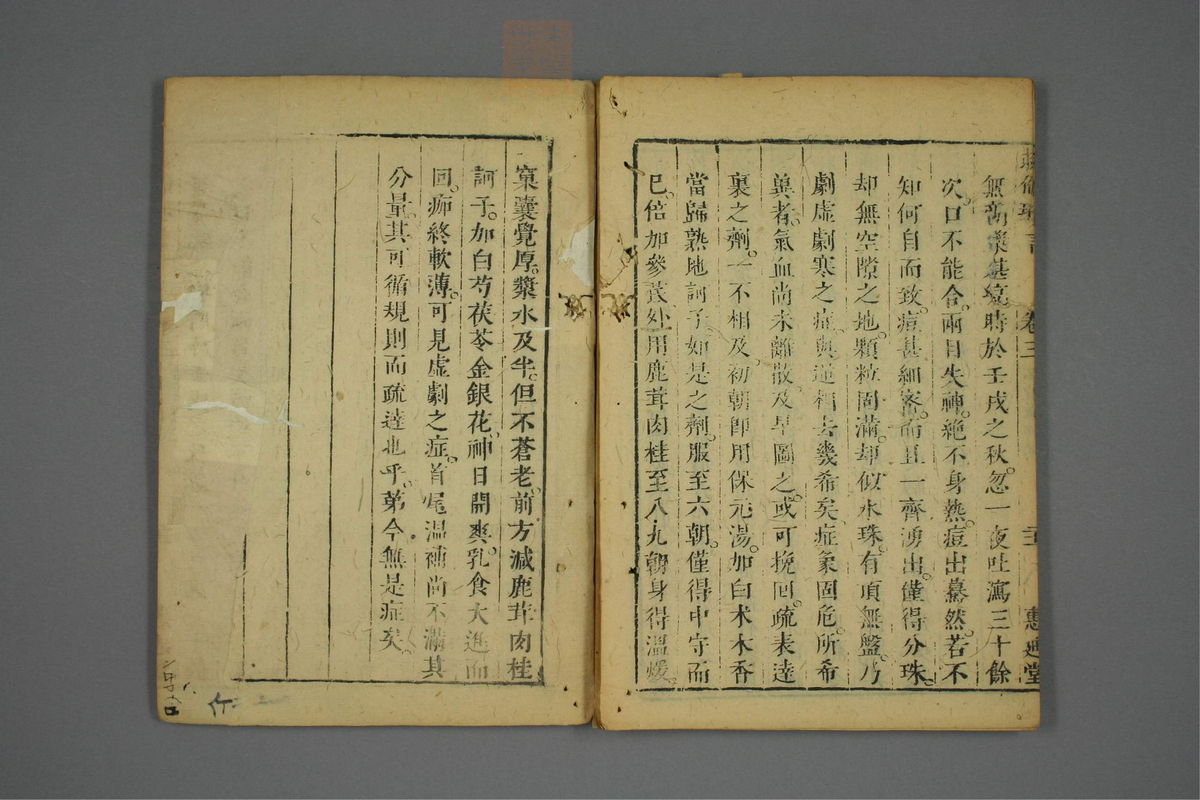 卷三
惠迪堂
時於壬戌之秋。忽一夜吐瀉三十餘
次。口不能合。兩目失神。絶不身熱。痘出驀然。若不
知何自而致。痘甚細密。而且一齊湧出。僅得分珠。
却無空隙之地。顆粒固滿。却似水珠。有頂無盤。乃
劇虛劇寒之症。與逆相去幾希矣。症象固危。所希
兾者。氣血尚未離散。及早圖之。或可挽回。疏表達
裏之劑。一不相及。初朝即用保元湯。加白术木香
當歸熟地訶子。如是之劑。服至六朝。僅得中守而
已。倍加參芪。外用鹿茸肉桂至八九朝。身得溫煖。
窠囊覺厚。漿水及半。但不蒼老。前方減鹿茸肉桂
訶子。加白芍茯苓金銀花。神日開爽。乳食大進。而
回。痂終軟薄。可見虛劇之症。首尾溫補。尚不滿其
分量。其可循規則而疏達也乎。第今無是症矣。